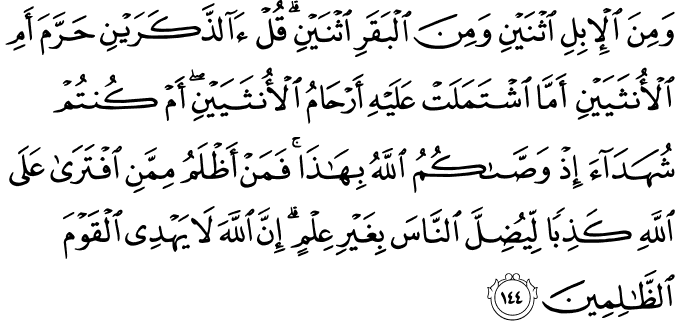 وَمِنَ ٱلْإِبِلِ ٱثْنَيْنِ وَمِنَ ٱلْبَقَرِ ٱثْنَيْنِ ۗ قُلْ ءَآلذَّكَرَيْنِ حَرَّمَ أَمِ
ٱلْأُنثَيَيْنِ أَمَّا ٱشْتَمَلَتْ عَلَيْهِ أَرْحَامُ ٱلْأُنثَيَيْنِ ۖ أَمْ كُنتُمْ
شُهَدَآءَ إِذْ وَصَّىٰكُمُ ٱللَّهُ بِهَٰذَا ۚ فَمَنْ أَظْلَمُ مِمَّنِ ٱفْتَرَىٰ عَلَى
ٱللَّهِ كَذِبًا لِّيُضِلَّ ٱلنَّاسَ بِغَيْرِ عِلْمٍ ۗ إِنَّ ٱللَّهَ لَا يَهْدِى ٱلْقَوْمَ
ٱلظَّٰلِمِينَ ١٤٤